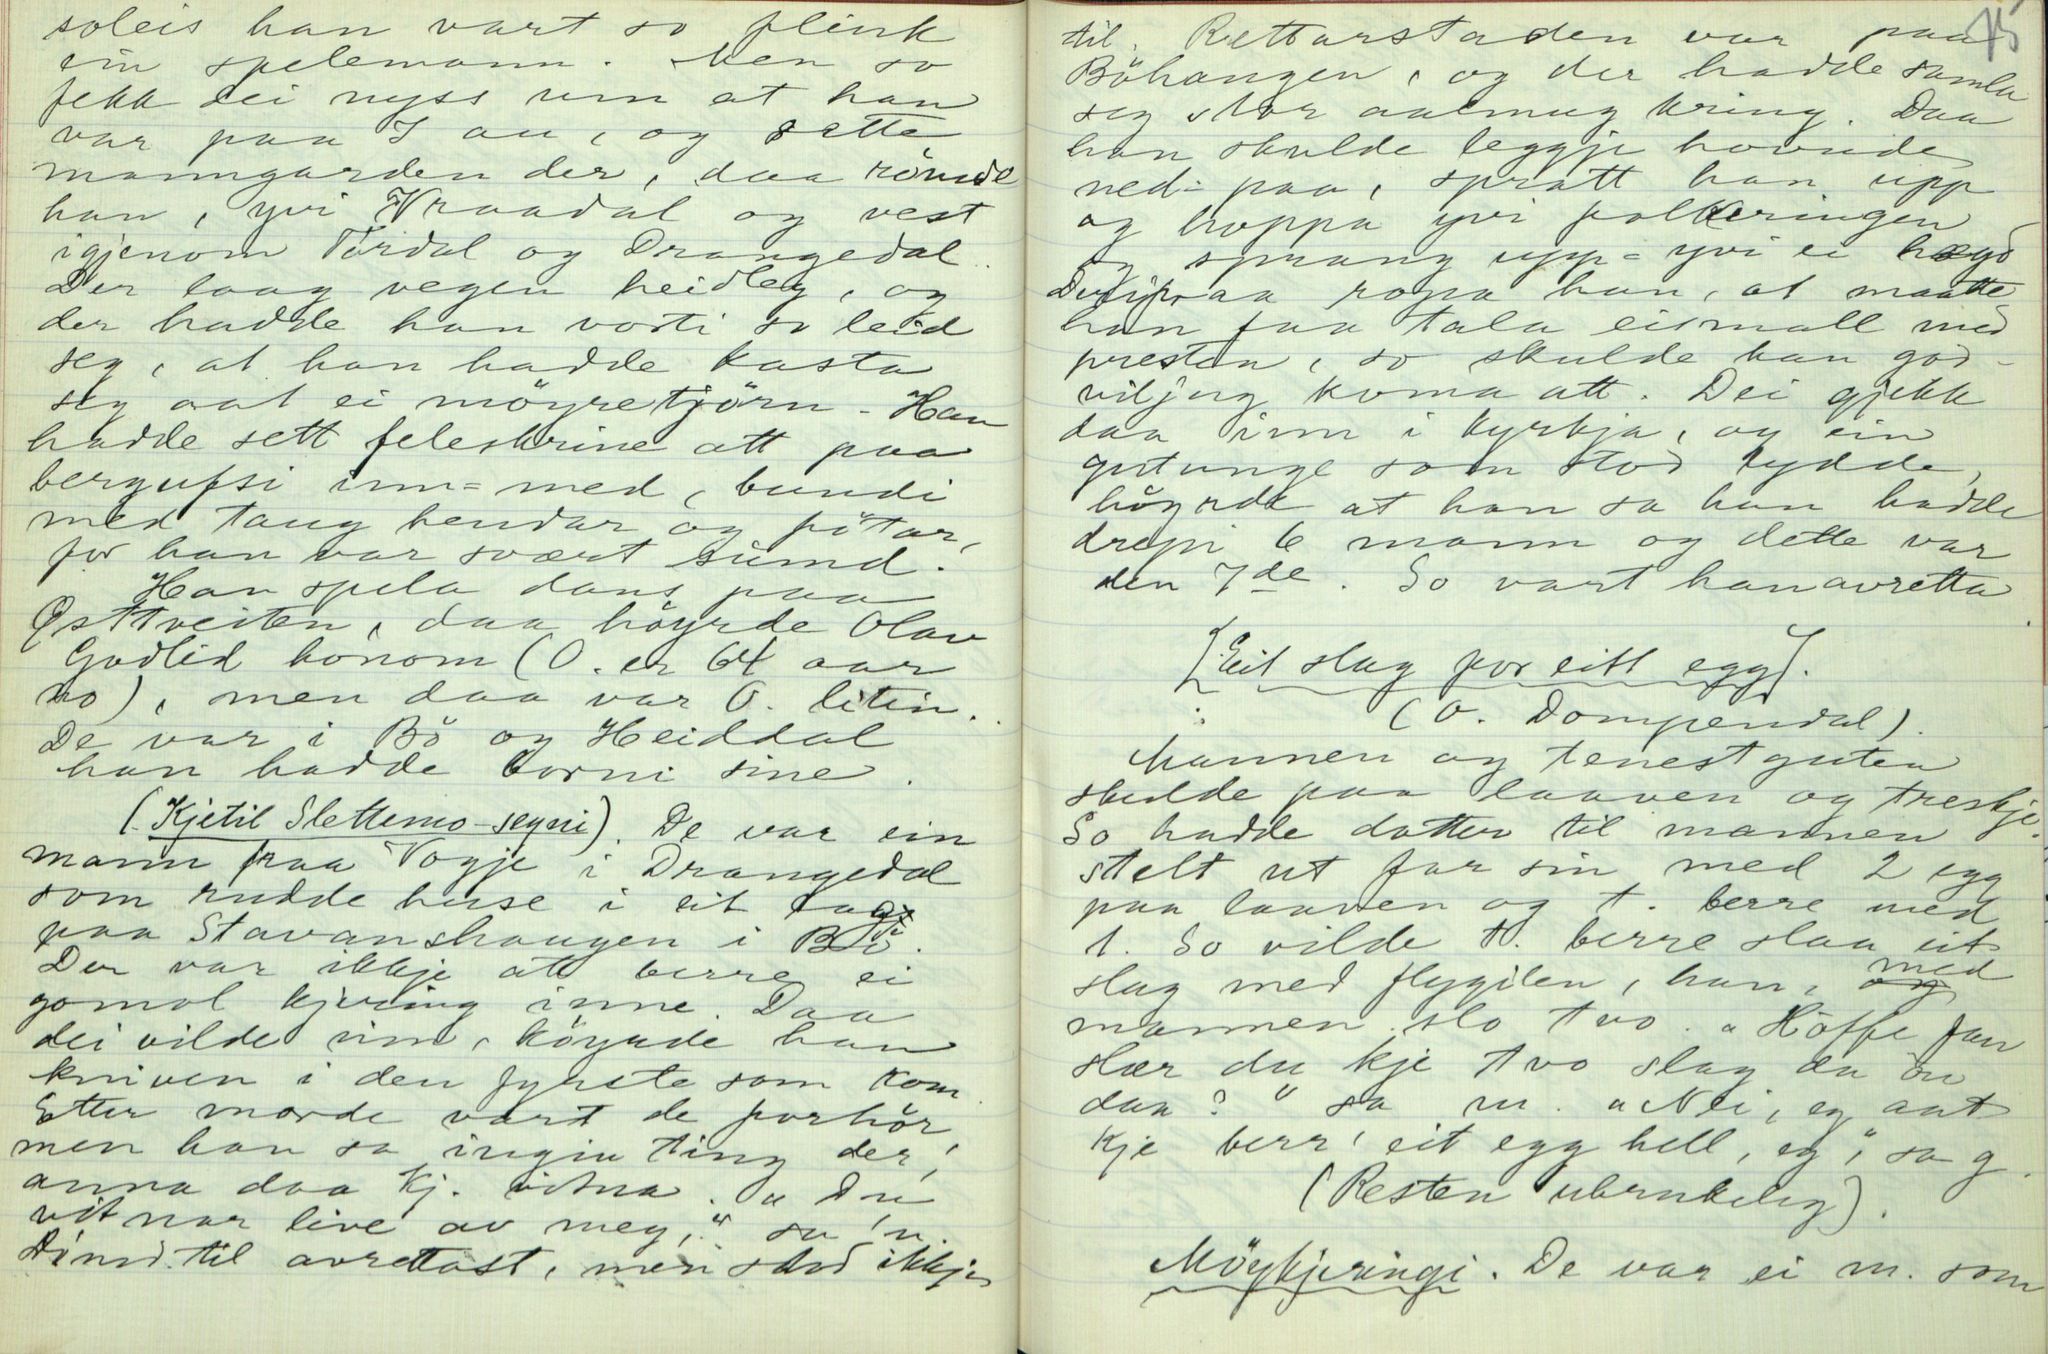 soleis han vart so flink
ein spelemann. Men so
fekk dei nyss um at han
var paa I au, og sette
manngarden der, daa römde
han, yvi Vraadal og vest
igjenom Tördal og Drangedal.
Der laag vegen heidleg, og
der hadde han vorti so leid
seg, at han hadde kasta
seg aat ei möyretjörn - Han
hadde sett feleskrine att paa
bergufsi inn=med, bundi
med taug hendar og fötar,
for han var svært sumd.
Han spela dans paa
Østtveiten, daa höyrde Olav
Godlid honom (O. er 64 aar
no), men daa var O. liten.
De var i Bö og Heiddal
han hadde borni sine.
(Kjetil Slettemo-segni). De var ein
mann fraa Vogje i Drangedal
som rudde huse i eit
paa Stavanshaugen i Bö.
Der var ikkje att berre ei
gomol kjering inne. Daa
dei vilde inn, köyrde han
kniven i den fyrste som kom.
Etter morde vart de forhör,
men han sa ingin ting der,
anna daa kj. vitna. "Du
vitnar live av meg," sa 'n.
Dömd til avrettast, men stod ikkje
75
til. Rettarstaden var paa
Böhaugen, og der hadde samla
seg stor aalmug kring. Daa
han skulde leggje hovude
ned=paa, spratt han upp
og hoppa yvi folkeringen
og sprang upp=yvi ei høgd
Deripaa ropa han, at maatte
han faa tala eismall med
presten, so skulde han god-
viljug koma att. Dei gjekk
daa inn i kyrkja, og ein
gutunge som stod lydde,
höyrde at han sa han hadde
drepi 6 mann og dette var
den 7de. So vart han avretta.
[Eit slag for eitt egg].
(O. Dompendal).
Mannen og tenestguten
skulde paa laaven og treskje.
So hadde dotter til mannen
stelt ut far sin med 2 egg
paa laaven og t. berre med
1. So vilde t. berre slaa eit
slag med flygilen, han, med
mannen slo tvo. "Höffe fan
slær du kje tvo slag du ou
daa?" sa m. "Nei, eg aat
kje berr' eit egg hell, eg," sa g.
(Resten ubrukeleg).
Möykjeringi. De var ei m. som